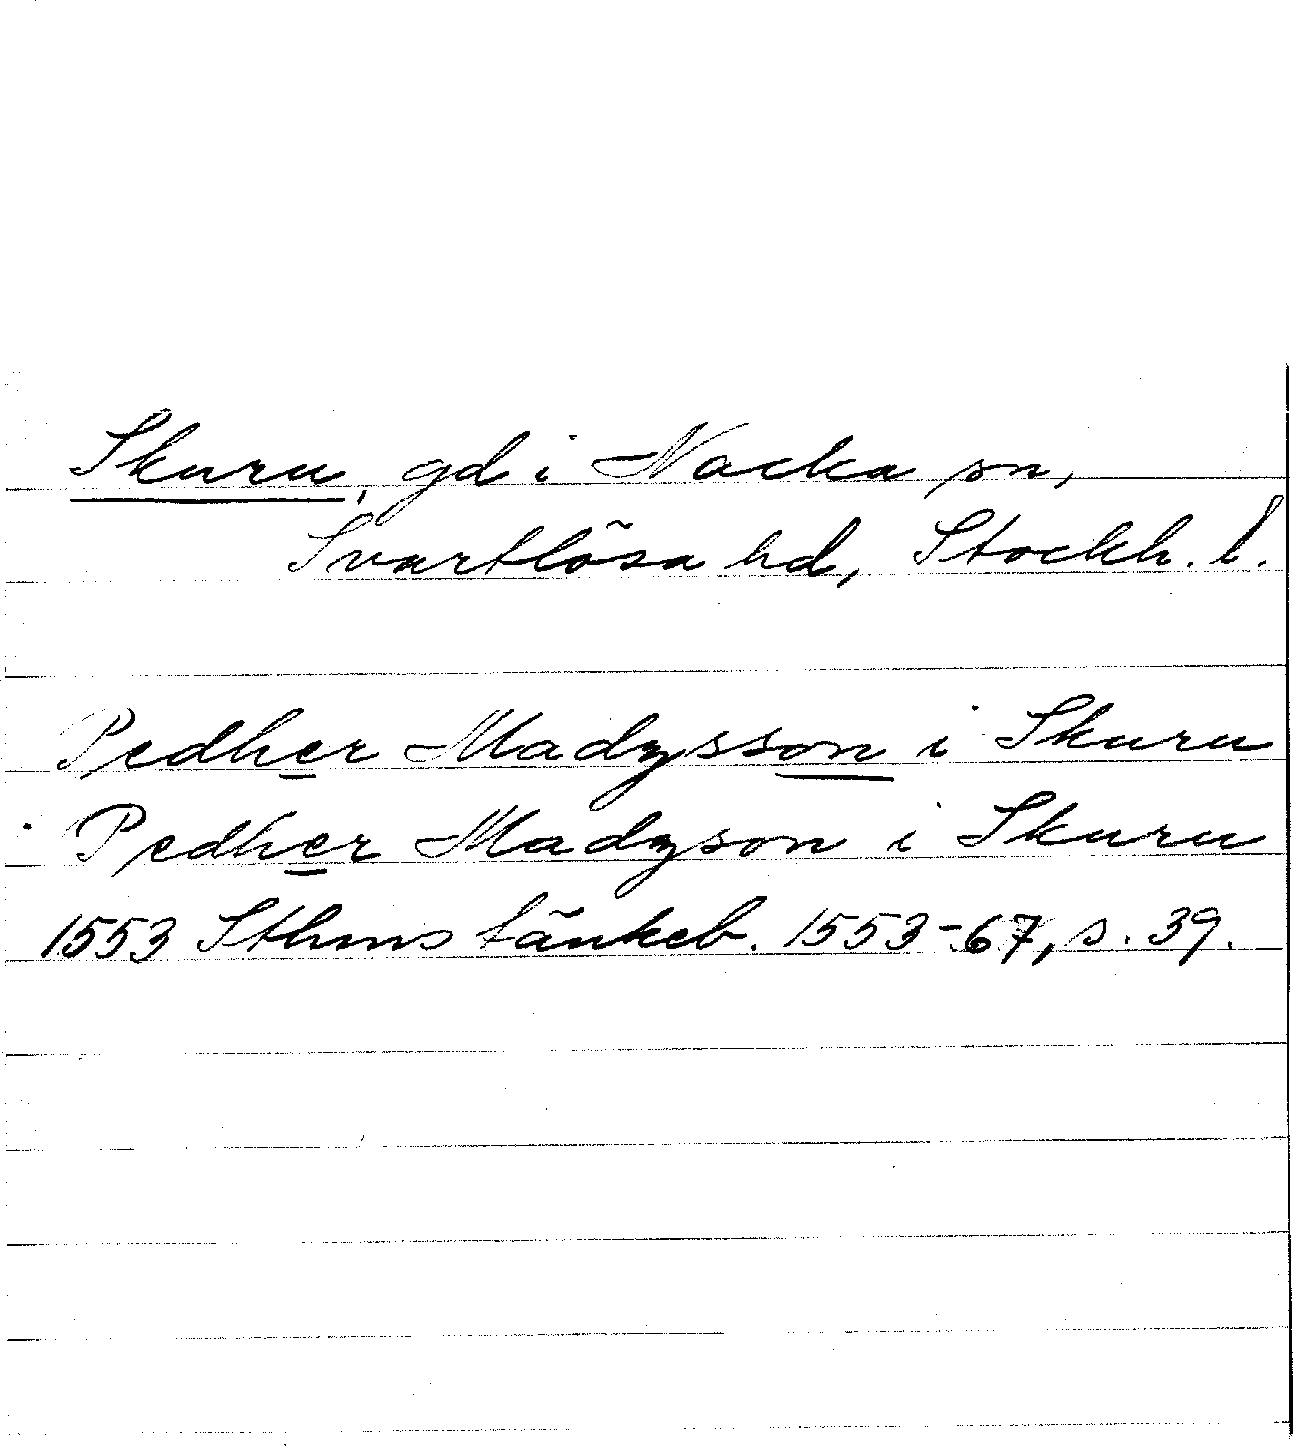 Skuru, gd i Nacka sn,
Svartlösa hd, Stockh. l.
Pedher Madzsson i Skuru
Pedher Madzson i Skuru
1553 Sthms tänkeb. 1553-67, s. 39.